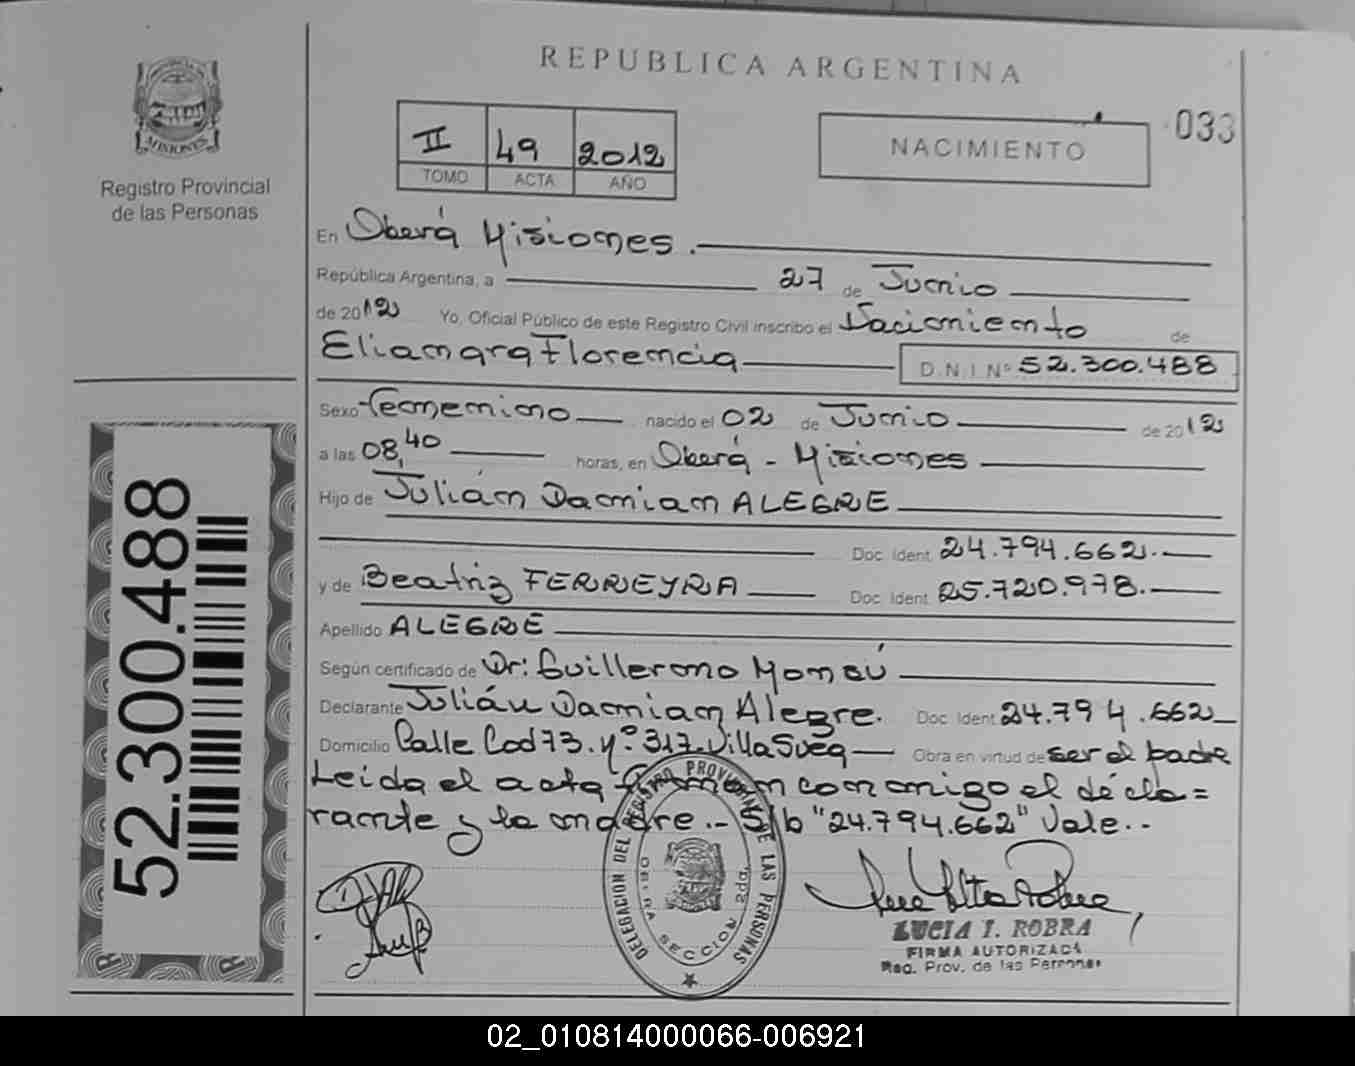 REPUBLICA ARGENTINA
MISIONES
Registro Provincial
de las Personas
II 49 2012
TOMO ACTA AÑO
NACIMIENTO
033
En Oberá Misiones.
República Argentina, a 27 de Junio
de 2012 Yo, Oficial Público de este Registro Civil inscribo el Nacimiento de
Eliamara Florencia D.N.I Nº 52.300.488
Sexo Femenino nacido el 02 de Junio de 2012
a las 08,40 horas, en Oberá - Misiones
Hijo de Julián Damian ALEGRE
Doc. Ident. 24.794.662.
y de Beatriz FERREYRA Doc. Ident. 25.720.978.
Apellido ALEGRE
Según certificado de Dr: Guillermo
Declarante Julián Damian Alegre. Doc. Ident. 24.794.662
Domicilio Calle Cod 73. Nº 317. Villa Obra en virtud de ser el padre
Leida el acta firman conmigo el décla=
rante y la madre.- S/b "24.794.662" Vale.-
52.300.488
DELEGACION DEL REGISTRO PROVINCIAL DE LAS PERSONAS
OBERA SECCION 2da.
LUCIA I. ROBRA
FIRMA AUTORIZADA
Reg. Prov. de las Personas
02_010814000066-006921